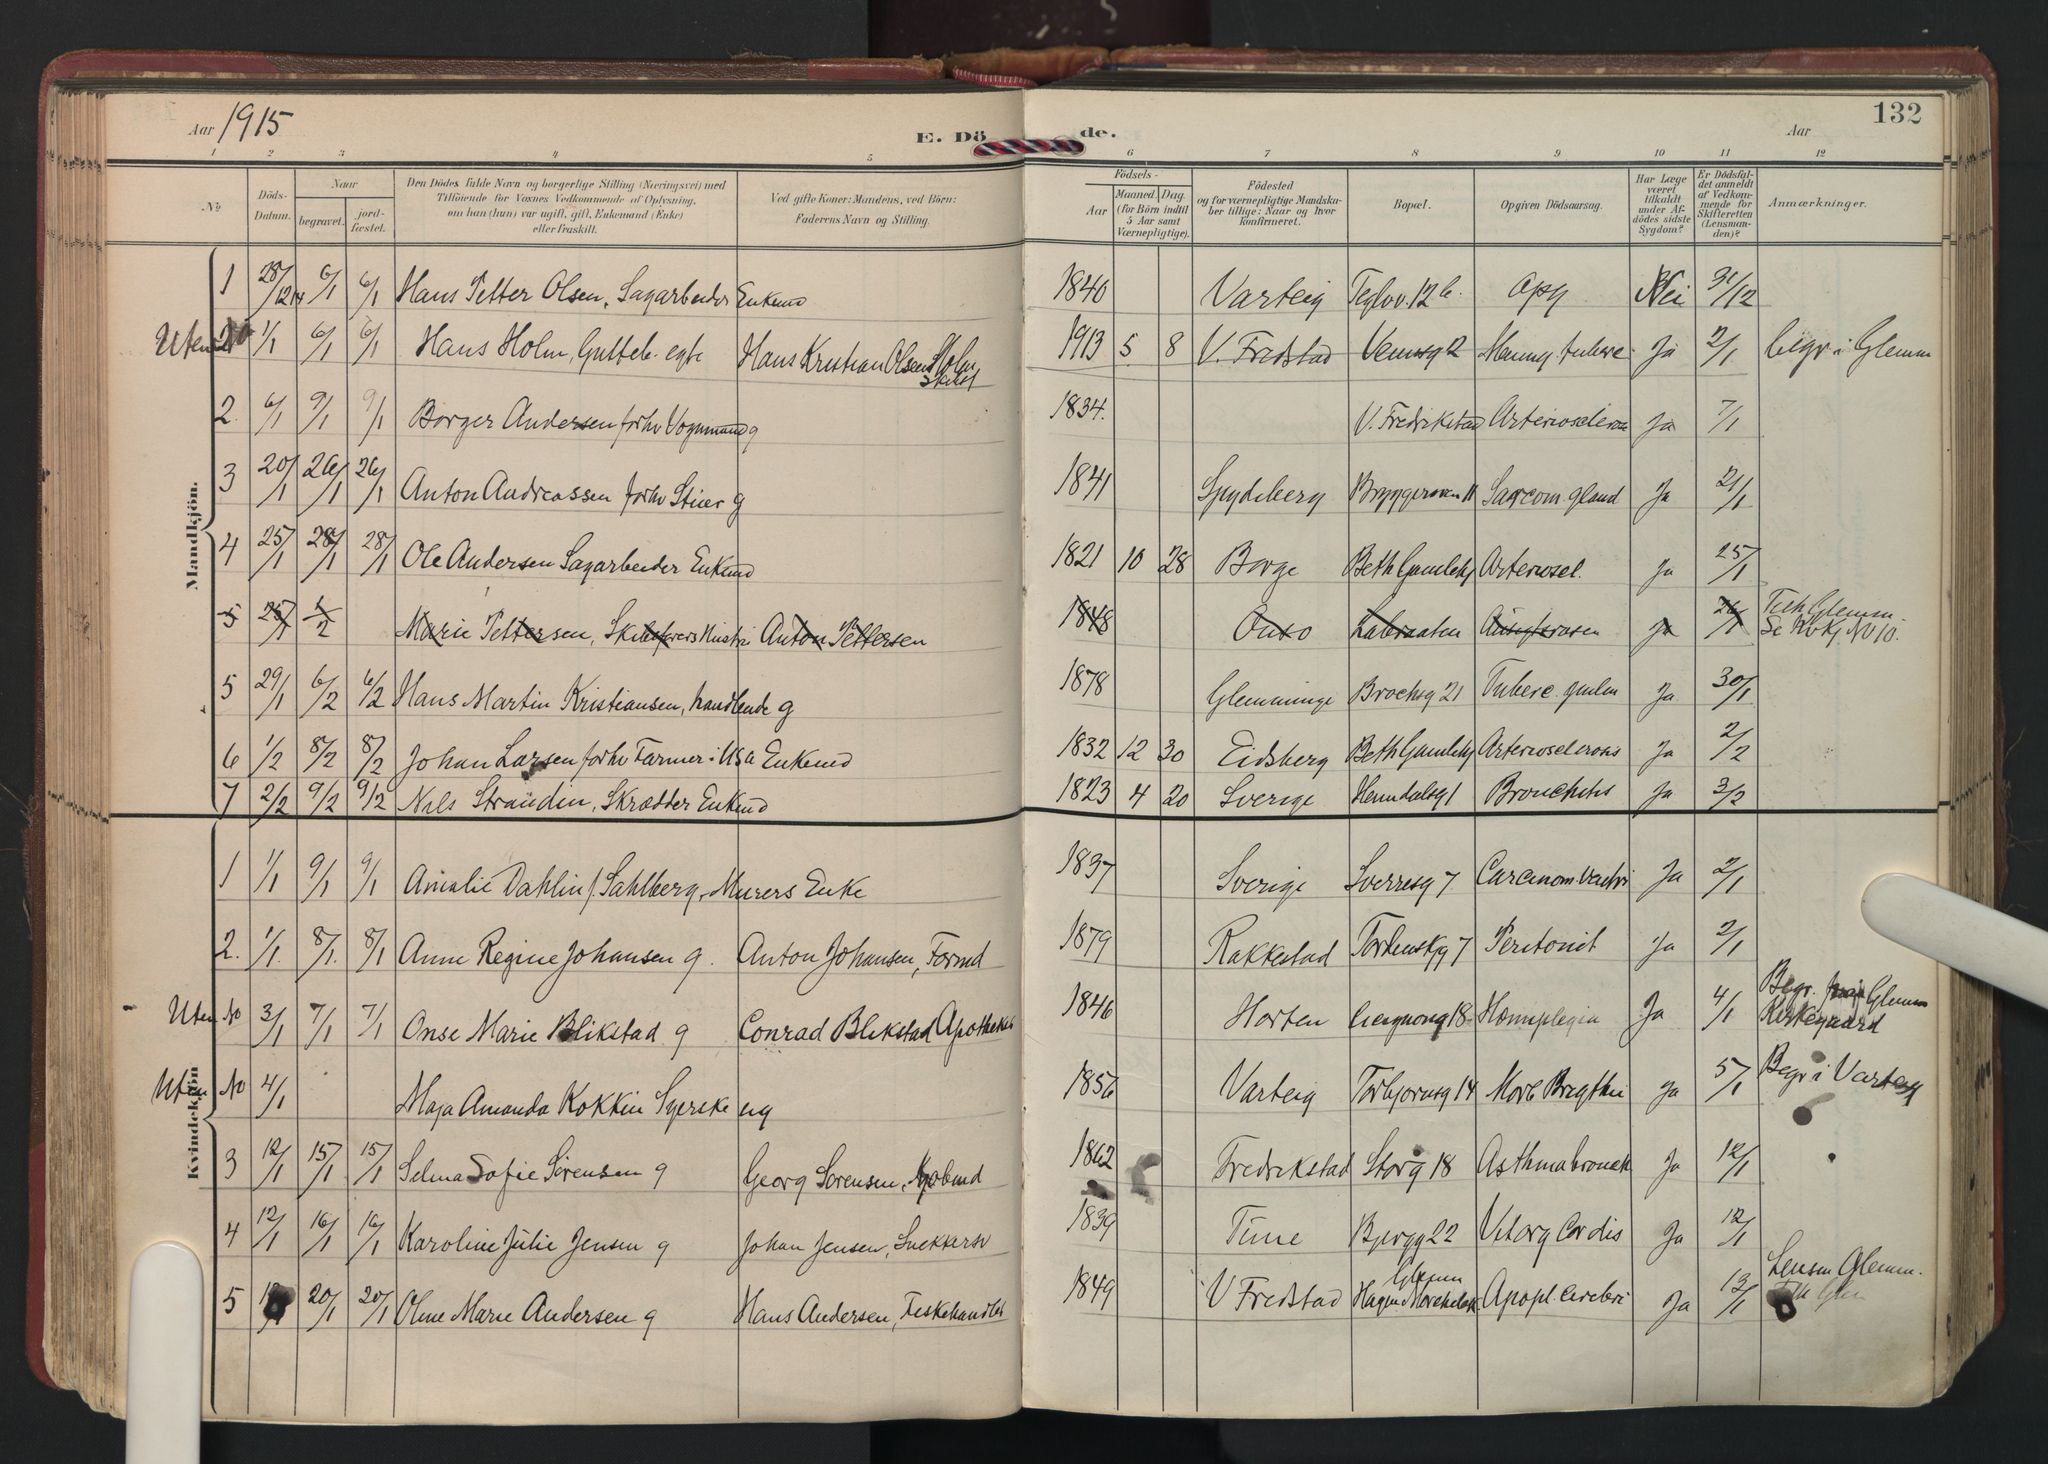 Aar 1915
E. Dö de.
Aar
132
1 2 3 4 5 6 7 8 9 10 11 12
No
Döds-Datum.
Naar
begravet.
jord-fæstet.
Den Dödes fulde Navn og borgerlige Stilling (Næringsvei) med Tilföiende for Voxnes Vedkommende af Oplysning, om han (hun) var ugift, gift, Enkemand (Enke) eller fraskilt.
Ved gifte Koner: Mandens, ved Börn: Faderens Navn og Stilling.
Födsels-
Aar
Maaned. Dag.
(for Börn indtil 5 Aar samt Værnepligtige).
Födested og for værnepligtige Mandskaber tillige: Naar og hvor konfirmeret.
Bopæl.
Opgiven Dödsaarsag.
Har Læge været tilkaldt under Afdödes sidste Sygdom?
Er Dödsfaldet anmeldt af Vedkommende for Skifteretten (Lensmanden)?
Anmærkninger.
Mandkjön.
1 28/12 14 6/1 6/1 Hans Petter Olsen, Sagarbeider Enkmd 1840 Varteig Teglv. 12 b. Apq Nei 31/12
Uten No 1/1 6/1 6/1 Hans Holm, Gutteb. egte Hans Kristian Olsen Holm 1913 5 8 V. Fredstad Venusg 2 Mening. tuberc Ja 2/1 begr. i Glemm
2. 6/1 9/1 9/1 Borger Andersen forhv Vognmand g 1834. V. Fredrikstad Arterioscleros Ja 7/1
3 20/1 26/1 26/1 Anton Andreassen forhv Stuer g 1841 Spydeberg Bryggeriveien 11 Sarcom. gland Ja 21/1
4 25/1 28/1 28/1 Ole Andersen Sagarbeider Enkmd 1821 10 28 Borge Beth Gamlehj Arterioscl. Ja 25/1
5 25/1 1/2 Marie Pettersen, Skibsførers Hustru Anton Pettersen 1848 Onsø Labraaten Ja 26/1 Tilh Glemm. Se Kvkj No 10.
5 29/1 6/2 6/2 Hans Martin Kristiansen, handlende g 1878 Glemminge Brochsg 21 Tuberc. pulm Ja 30/1
6 1/2 8/2 8/2 Johan Larsen forhv Farmer i USA Enkemd 1832 12 30 Eidsberg Beth Gamlehj Arteriosclerosis Ja 2/2
7 2/2 9/2 9/2 Nils Strandin, Skrædder Enkmd 1823 4 20 Sverige Heimdalsg 1 Bronchitis Ja 3/2
Kvindekjön
1 1/1 9/1 9/1 Amalie Dahlin f. Sahlberg, Murers Enke 1837 Sverige Sverresg 7 Carcinom ventri Ja 2/1
2. 1/1. 8/1. 8/1 Anne Regine Johansen g. Anton Johansen, Formd 1879 Rakkestad Tordenskjg 7 Peritonit Ja 2/1
Uten No 3/1 7/1 7/1 Onse Marie Blikstad g Conrad Blikstad Apotheker 1846 Horten 18 Hemiplegia Ja 4/1 Begr. paa Glemm Kirkegaard
Uten No 4/1 Maja Amanda Kokkin Syerske ug 1856 Varteig Torbjornsg 14 Morb Brigthii Ja 5/1 Begr i Varteig
3 12/1 15/1 15/1 Selma Sofie Sørensen g Georg Sørensen, Kjøbmd 1862 Fredrikstad Storg 18 Asthma bronch Ja 12/1
4 12/1 16/1 16/1 Karoline Julie Jensen g Johan Jensen, Snekkersv 1839 Tune Bjergg 22 Vit org Cordis Ja 12/1
5 20/1 20/1 Oline Marie Andersen g Hans Andersen, Fiskehandler 1849 V Fredstad Glemm Apopl. cerebri Ja 13/1 Lensm Glemm.